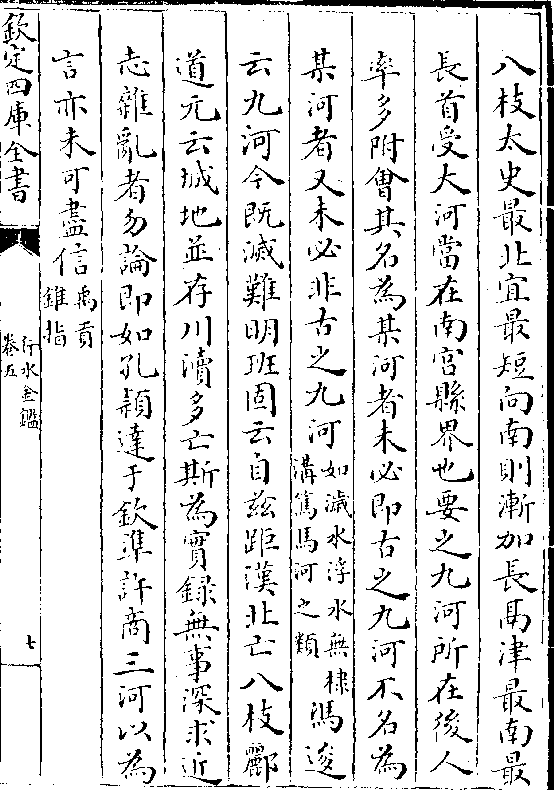 八枝太史最北宜最短向南則漸加長鬲津最南最
長首受大河當在南宫縣界也要之九河所在後人
率多附會其名為某河者未必即古之九河不名為
某河者又未必非古之九河如濊水浮水無棣溝篤馬河之類馮逡
云九河今既滅難明班固云自兹距漢北亡八枝酈
道元云城地並存川瀆多亡斯為實録無事深求近
志雜亂者勿論即如孔頴達于欽凖許商三河以為
言亦未可盡信禹貢錐指
欽定四庫全書
行水金鑑
卷五
七